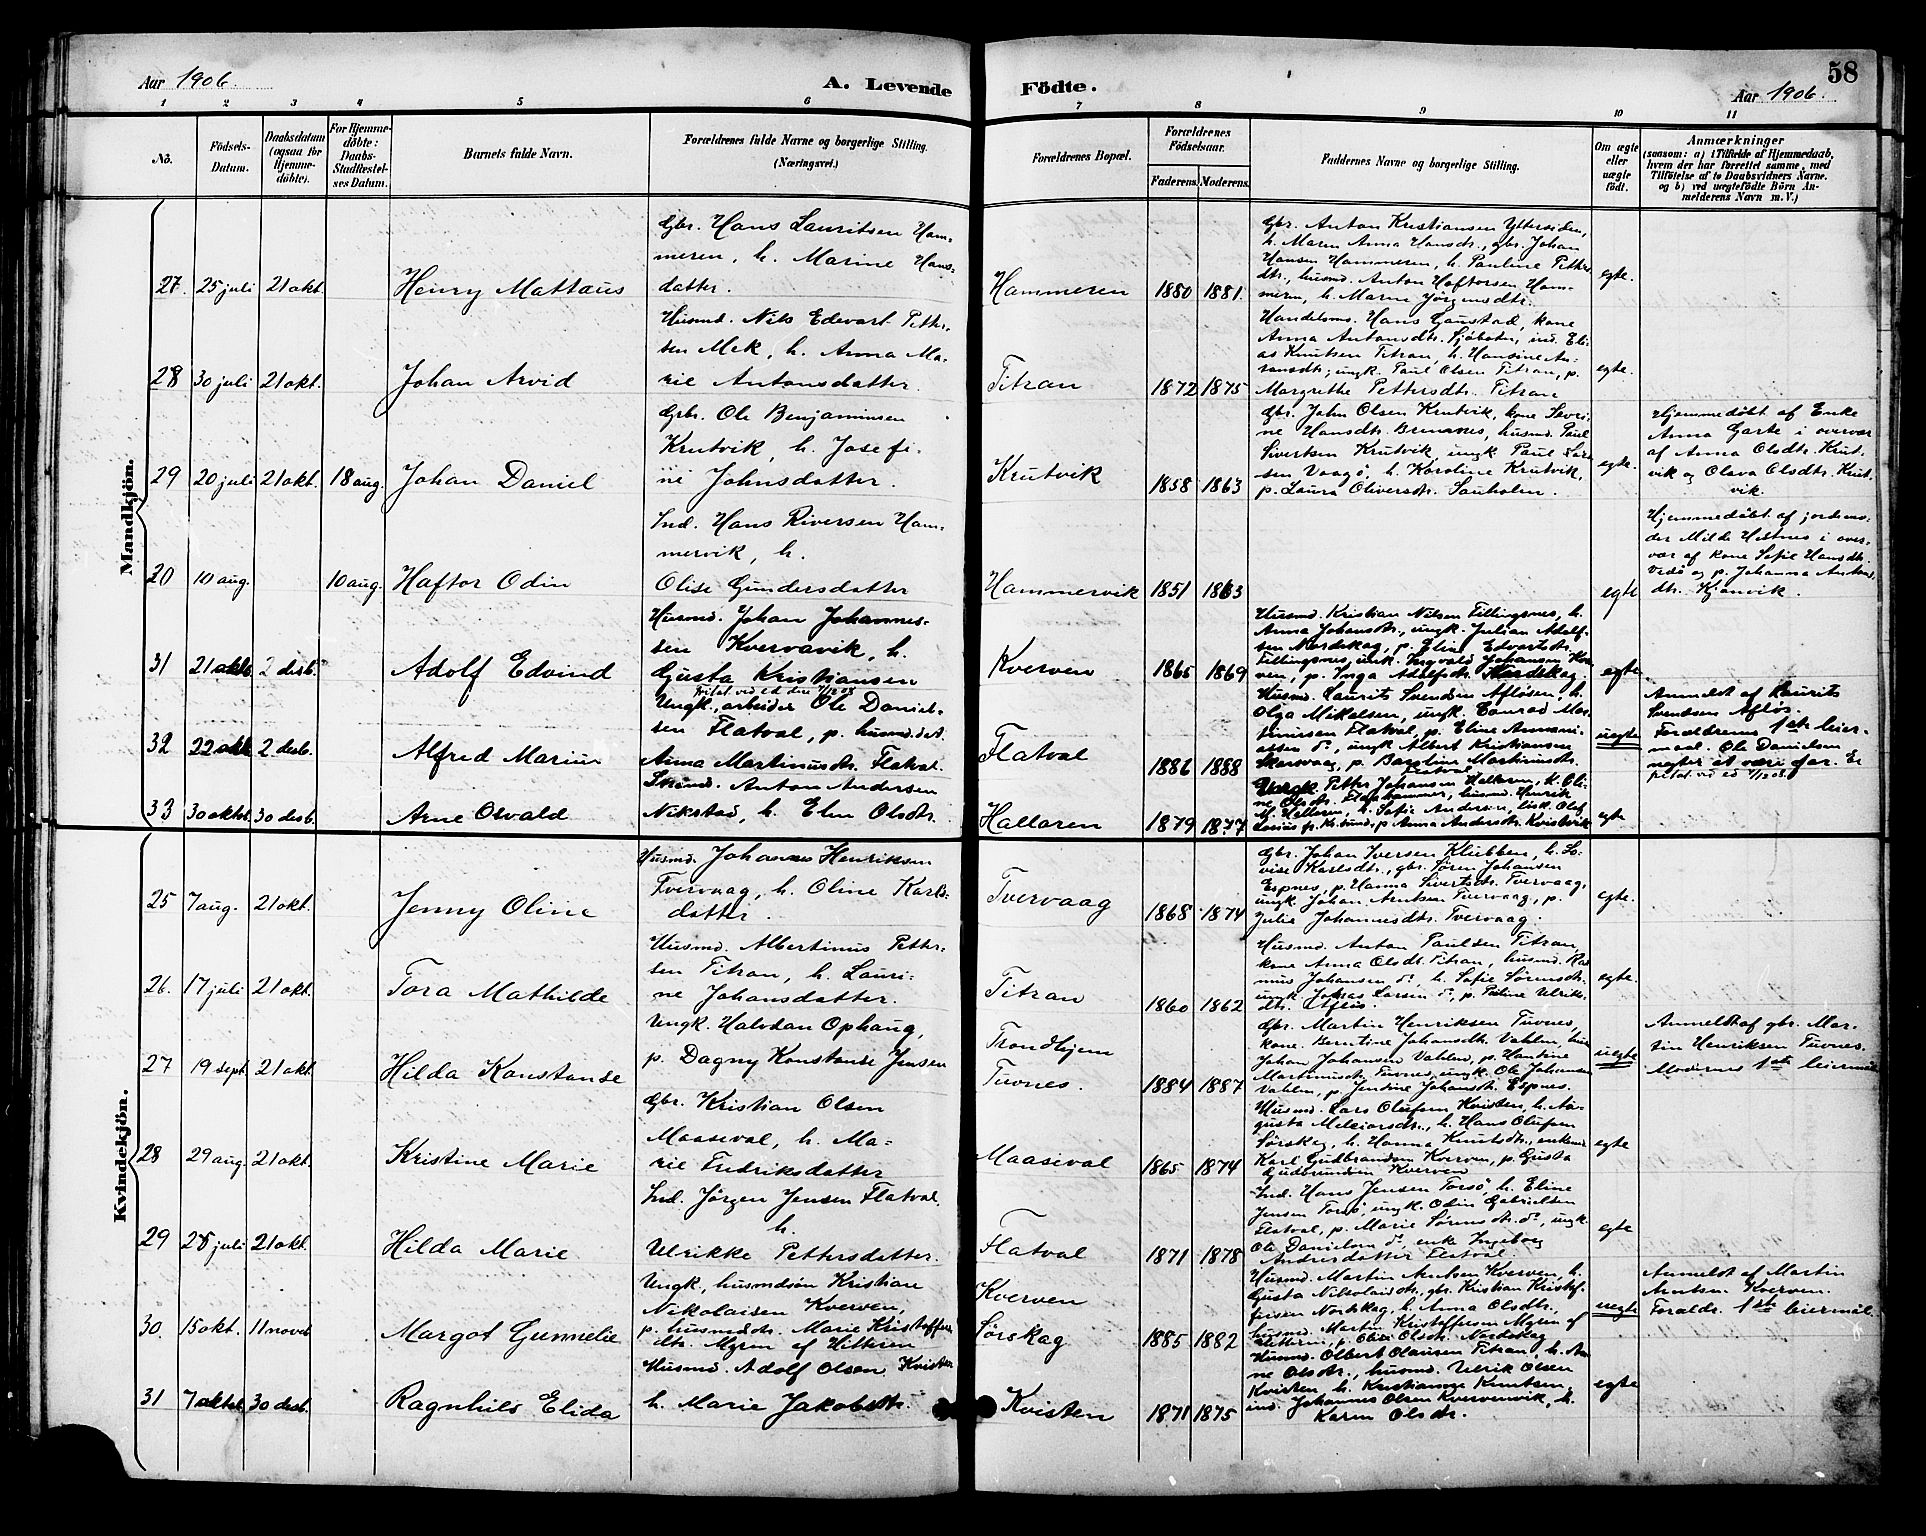 58
Aar 1906.
A. Levende Födte.
Aar 1906.
1 2 3 4 5 6 7 8 9 10 11
No.
Födsels-Datum.
Daabsdatum (ogsaa for Hjemme-döbte).
For Hjemme-döbte: Daabs-Stadfæstel-ses Datum.
Barnets fulde Navn.
Forældrenes fulde Navne og borgerlige Stilling.
(Næringsvei.)
Forældrenes Bopæl.
Forældrenes Födselsaar.
Faderens.
Moderens.
Faddernes Navne og borgerlige Stilling.
Om ægte eller uægte födt.
Anmærkninger
(saasom: a) i Tilfælde af Hjemmedaab,
hvem der har forrettet samme, med
Tilföielse af to Daabsvidners Navne.
og b) ved uægtefödte Börn An-
melderens Navn m. V.)
Mandkjön.
27. 25 juli 21 okt. Henry Mattæus
Gbr. Hans Lauritsen Ham-
meren, h. Marine Hans-
datter.
Hammeren 1880 1881.
Gbr. Anton Kristiansen Yttersiden,
h. Maren Anna Hansdtr., gbr. Johan
Hansen Hammeren, h. Pauline Petters
dtr., husmd. Anton Haftorsen Ham-
meren, h. Maren Jørgensdtr.
egte.
28 30 juli 21 okt. Johan Arvid
Husmd. Nils Edevart Petter-
sen Mek, h. Anna Ma-
rie Antonsdatter.
Titran 1872 1875
Handelsmd. Hans Gaustad, kone
Anna Antonsdtr. Sjøboden, ind. Eli-
as Knutsen Titran, h. Hansine An-
tonsdtr, ungk. Paul Olsen Titran, p.
Margrethe Pettersdt. Titran
egte.
29 20 juli 21 okt. 18 aug. Johan Daniel
Gbr. Ole Benjaminsen
Krutvik, h. Josefi-
ne Johnsdatter.
Krutvik 1858 1863
Gbr. John Olsen Krutvik, kone Severi-
ne Hansdtr. Bremnes, husmd. Paul
Sivertsen Krutvik, ungk Paul Lar
sen Vaagø, h. Karoline Krutvik,
p. Laura Oliversdtr. Sauholen.
egte.
Hjemmedøbt af Enke
Anna Garte i overvær
af Anna Olsdt. Krut-
vik og Olava Olsdtr. Krut-
vik.
20 10 aug. 10 aug. Haftor Odin
Ind. Hans Riversen Ham-
mervik, h.
Olise Gundersdatter
Hammervik 1851 1863
egte
Hjemmedøbt af jordemo-
der Milde Hestnes i over-
vær af kone Sofie Hansdtr.
Vedø og p. Johanna Antons-
dtr. Kjønvik.
31 21 oktb. 2 desb. Adolf Edvind
Husmd. Johan Johannes-
sen Kvervavik, h.
Gusta Kristiansen
Kverven 1865 1869
Husmd. Kristian Nilsen Fillingsnes, h.
Anna Johansdtr., ungk. Julian Adolf-
sen Nordskag, p. Elin Edvartsdtr.
Fillingsnes, ungk. Ingvald Johansen Kver-
ven, p. Inga Adolfsdtr. Nordskag.
egte
32 22 oktb 2 desb. Alfred Marius
Fritat ved ed den 1/12 08
Ungk., arbeider Ole Daniel-
sen Flatval, p. husmd.dat.
Anna Martinusdtr. Flatval.
Flatval 1886 1888
Husmd. Laurits Svendsen Afløsen, h.
Olga Mikalsen, ungk. Conrad Mar-
tinusen Flatval, p. Eline Ammani-
assen do, ungk Albert Kristiansen
Skarsvaag, p. Baroline Martinusdtr.
Flatval
uegte
Anmeldt af Laurits
Svendsen Afløs.
Forældrenes 1ste leier-
maal. Ole Danielsen
negter at være far. Er
fritat ved ed 1/12 08.
33 30 oktbr. 30 desb. Arne Osvald
Anton Andersen
Nikstad, h. Elen Olsdtr.
Hallaren 1879 1877
Ungk. Petter Johansen Hallaren, h. Oli-
ne Olsdtr. husmd. Henrik
M. Hallaren, h. Sofie Andersen, Olaf
Kr.sund, p Anna Andersdtr. Kvistvik
egte
Kvindekjön.
25 7 aug. 21 okt. Jenny Oline
Husmd. Johannes Henriksen
Tvervaag, h. Oline Karls-
datter.
Tvervaag 1868 1874
Gbr. Johan Iversen Klubben, h. Lo-
vise Karlsdtr., gbr. Søren Johansen
Espnes, p. Hanna Sivertsdtr. Tvervaag,
ungk. Johan Arntsen Tvervaag, p.
Julie Johannesdtr. Tvervaag.
egte.
26. 17 juli 21 okt. Tora Mathilde
Husmd. Albertinus Petter-
sen Titran, h. Lauri-
ne Johansdatter.
Titran 1860 1862
Husmd. Anton Paulsen Titran,
kone Anna Olsdt. Titran, husmd. Ras
mus Johansen do, h. Sofie Sørensdtr.
ungk. Johas Larsen do, p. Petrine Ulriks-
dtr. Afløs.
egte.
27 19 sept 21 okt. Hilda Konstanse
Ungk. Halvdan Ophaug,
p. Dagny Konstanse Jensen
Trondhjem
Tuvnes. 1884 1887
Gbr. Martin Henriksen Tuvnes,
kone. Berntine Johansdtr. Vahlen,
Johan Johansen Vahlen, p. Hantine
Martinusdtr. Tuvnes, ungk. Ole Johansen
Vahlen, p. Jendine Johansdtr. Espnes.
uegte
Anmeldt af gbr. Mar-
tin Henriksen Tuvnes.
Moderens 1ste leiermaal
28 29 aug. 21 okt. Kristine Marie
Gbr. Kristian Olsen
Maaseval, h. Ma-
rie Fredriksdatter
Maaseval 1865 1874
Husmd. Lars Olufsen Kvisten, h. Au-
gusta Melciorsdtr., h. Hans Olufsen
Sørskag, h. Hanna Knutsdtr., enkemd
Karl Gudbrandsen Kverven, p. Gusta
Gudbrandsen Kverven
egte
29 25 juli 21 okt. Hilda Marie
Ind. Jørgen Jensen Flatval.
h.
Ulrikke Pettersdatter.
Flatval 1871 1878
Ind. Hans Jensen Torsø, h. Eline
Jensen Torsø, ungk. Odin Gabrielsen
Flatval, p. Marie Sørensdtr. do, ungk
Ole Danielsen do, enke Ingeborg
Andersdatter Flatval.
egte
30. 15 okt. 11 novbr Margot Gunnelie
Ungk, husmdsøn Kristian
Nikolaisen Kverven,
p. husmdsdtr. Marie Kristoffers
dtr. Myren af Hitteren
Kverven
Sørskag 1885 1882
Husmd. Martin Arntsen Kverven, h.
Gusta Nikolaisdtr., gbr. Kristian Kristof-
fersen Nordskag, h. Anna Olsdtr.,
husmd. Martin Kristoffersen Myren af
Hitteren, p. Oline Olsdtr. Nordskag
uegte
Anmeldt af Martin
Arntsen Kverven.
Foraldr. 1ste leiermål.
31 7 oktbr. 30 desb. Ragnhild Elida
Husmd. Adolf Olsen Kvisten
h. Marie Jakobsdtr.
Kvisten 1871 1875
Husmd. Olbert Olausen Titran, h. An-
ne Olsdtr., husmd. Ulrik Olsen
Kvisten, h. Kristianne Knutsen,
ind. Johannes Olsen Kvervenvik, h.
Karen Olsdtr.
egte